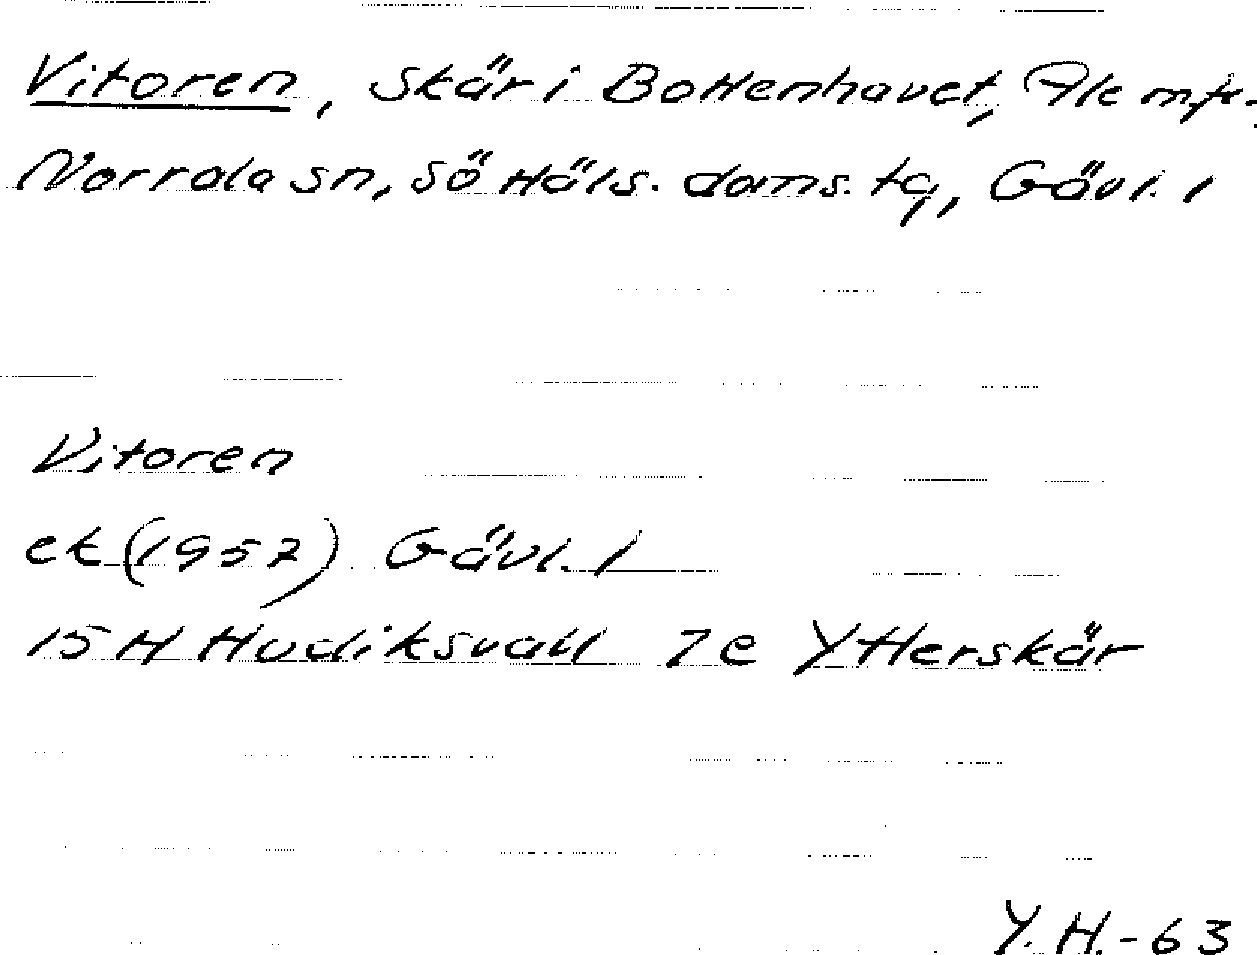 Vitoren, skär i Bottenhavet, Ale mfr.,
Norrala sn, Sö Häls. doms. tg, Gävl. l
Vitoren
ek (1957) Gävl. l
15 H Hudiksvall 7e Ytterskär
Y. H. - 63